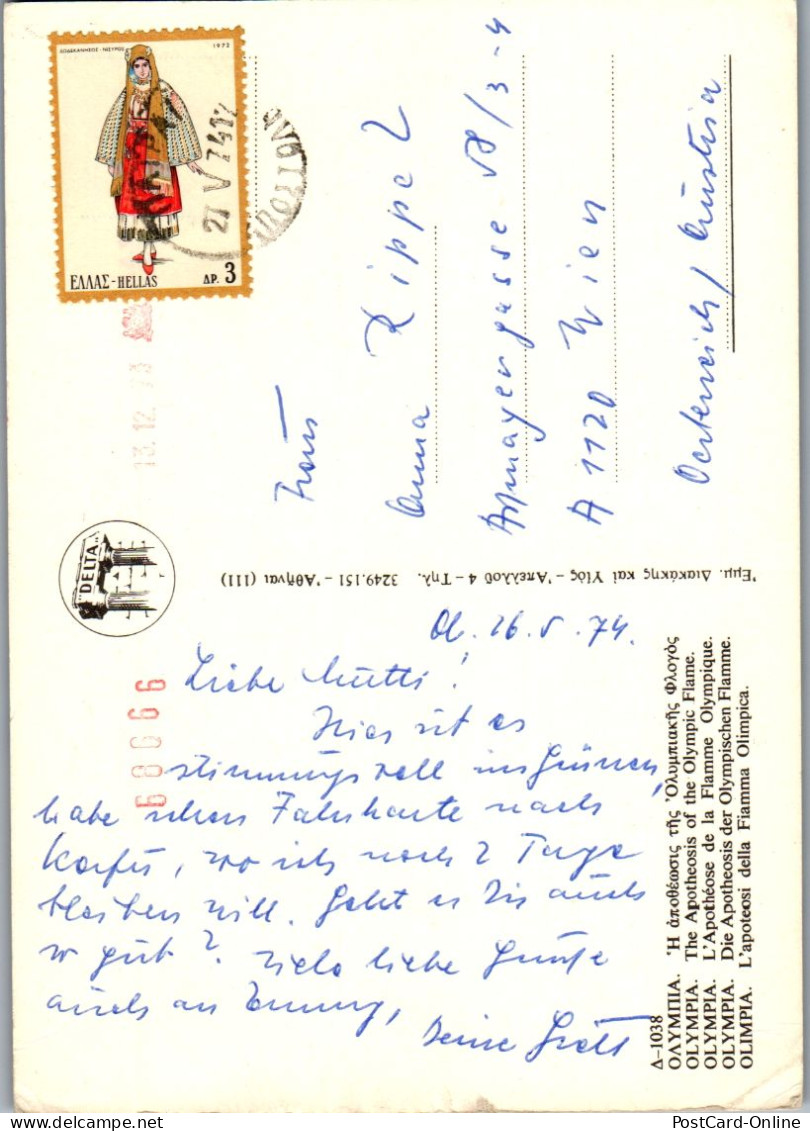 ΔΩΔΕΚΑΝΗΣΟΣ - ΝΙΣΥΡΟΣ 1972
ΕΛΛΑΣ-HELLAS ΔΡ. 3
27 V 74
13.12.73
DELTA
68066
Frau
Anna Rippel
Aßmayergasse
A 1120 Wien
Oesterreich / Austria
Ἐμμ. Διακάκης καί Υἱός - Ἀπελλοῦ 4 - Τηλ. 3249.151 - Ἀθῆναι (111)
Ol. 26.5.74.
Liebe Mutti!
Hier ist es
stimmungsvoll im Grünen,
habe schon Fahrkarte nach
Korfu, wo ich noch 2 Tage
bleiben will. Geht es Dir auch
so gut? Viele liebe Grüße
auch an
Deine
Δ-1038
ΟΛΥΜΠΙΑ. Ἡ ἀποθέωσις τῆς Ὀλυμπιακῆς Φλογός
OLYMPIA. The Apotheosis of the Olympic Flame.
OLYMPIA. L'Apothéose de la Flamme Olympique.
OLYMPIA. Die Apotheosis der Olympischen Flamme.
OLIMPIA. L'apoteosi della Fiamma Olimpica.
PostCard-Online